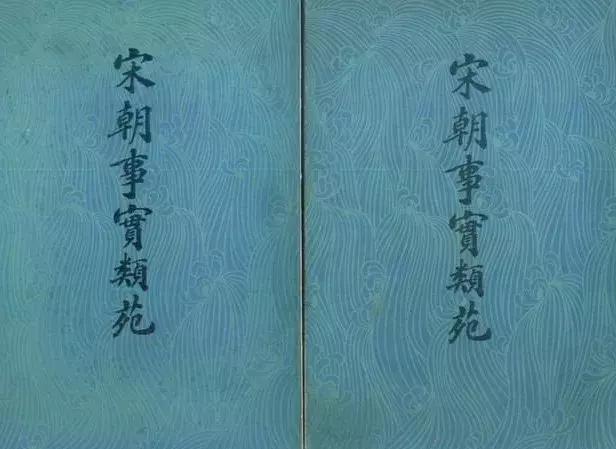 宋朝事實類苑
宋朝事實類苑